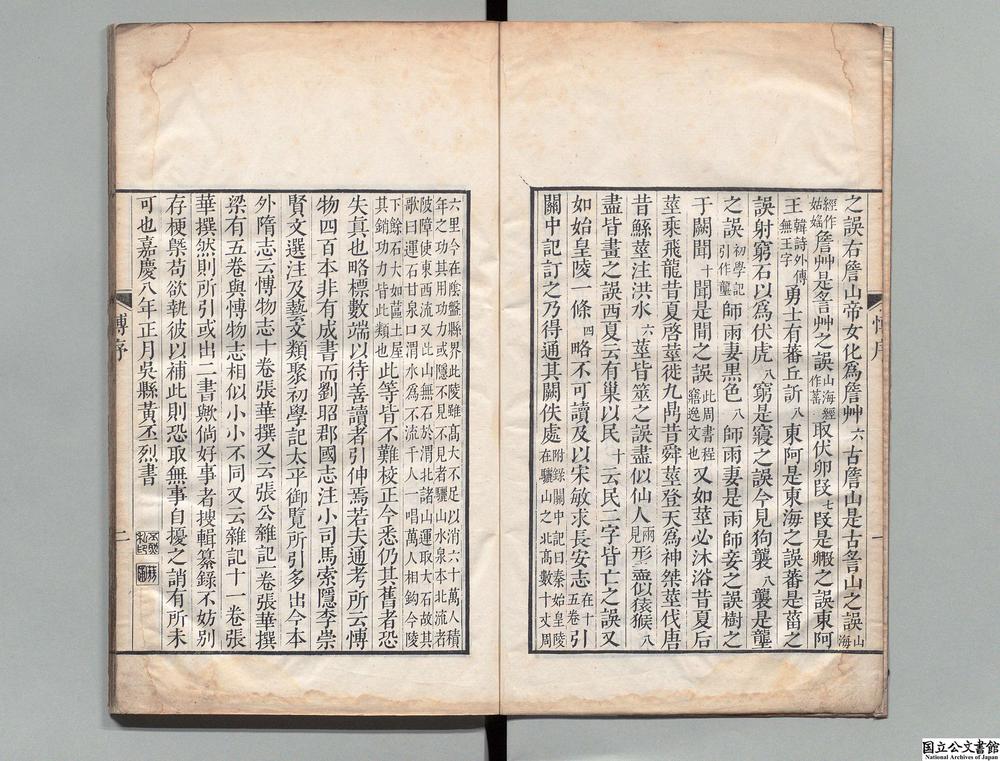 之誤右詹山帝女化爲詹艸六古詹山是古䍃山之誤山海
經作姑媱詹艸是䍃艸之誤山海經作䔄取伏卵段七段是毈之誤東阿
王韓詩外傳無王字勇士有蕃丘訢八東阿是東海之誤蕃是菑之
誤射窮石以爲伏虎八窮是寢之誤今見狗襲八襲是壟
之誤初學記引作壟師雨妻黑色八師雨妻是雨師妾之誤樹之
于闕聞十聞是閒之誤此周書程寤逸文也又如莖必沐浴昔夏后
莖乘飛龍昔夏啓莖徙九鼎昔舜莖登天爲神桀莖伐唐
昔鯀莖注洪水六莖皆筮之誤盡似仙人兩見形盡似猿猴八
盡皆畫之誤西夏云有巢以民十云民二字皆亡之誤又
如始皇陵一條四略不可讀及以宋敏求長安志在十五卷引
關中記訂之乃得通其闕佚處附錄關中記曰秦始皇陵在驪山之北高數十丈周
六里今在陰盤縣界此陵雖高大不足以消六十萬人積年之功其用功力或隱不見不見者驪山水泉本北流者
陂障使東西流又此山無石於渭北諸山運取大石故其歌曰運石甘泉口渭水爲不流千人一唱萬人相鈎今陵
下餘石大如𦊰土屋其銷功力皆此類也此等皆不難校正今悉仍其舊者恐
失真也略標數端以待善讀者引伸焉若夫通考所云愽
物四百本非有成書而劉昭郡國志注小司馬索隱李崇
賢文選注及藝文類聚初學記太平御覽所引多出今本
外隋志云愽物志十卷張華撰又云張公雜記一卷張華撰
梁有五卷與愽物志相似小小不同又云雜記十一卷張
華撰然則所引或出二書歟倘好事者搜輯纂錄不妨別
存梗槩苟欲執彼以補此則恐取無事自擾之誚有所未
可也嘉慶八年正月吳縣黃丕烈書
愽序
一
愽序
二
国立公文書館
National Archives of Japan